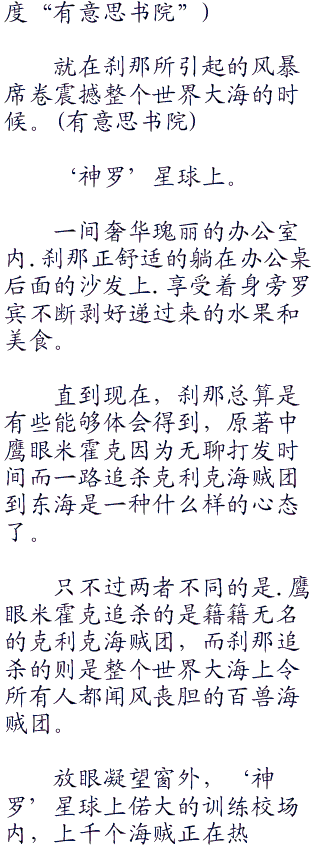 度“有意思书院”)
就在刹那所引起的风暴
席卷震撼整个世界大海的时
候。(有意思书院)
‘神罗’星球上。
一间奢华瑰丽的办公室
内.刹那正舒适的躺在办公桌
后面的沙发上.享受着身旁罗
宾不断剥好递过来的水果和
美食。
直到现在，刹那总算是
有些能够体会得到，原著中
鹰眼米霍克因为无聊打发时
间而一路追杀克利克海贼团
到东海是一种什么样的心态
了。
只不过两者不同的是.鹰
眼米霍克追杀的是籍籍无名
的克利克海贼团，而刹那追
杀的则是整个世界大海上令
所有人都闻风丧胆的百兽海
贼团。
放眼凝望窗外，‘神
罗’星球上偌大的训练校场
内，上千个海贼正在热